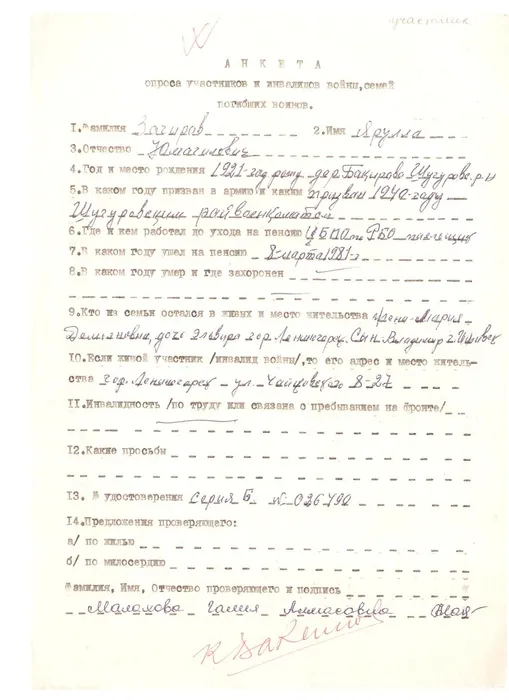 участник
АНКЕТА
опроса участников и инвалидов войны, семей
погибших воинов.
1. Фамилия Загиров 2. Имя Ярулла
3. Отчество Юмагилович
4. Год и место рождения 1921-год рожд. дер. Бакирово Шугуровс. р-н
5. В каком году призван в армию и каким призван 1940-году
Шугуровским райвоенкоматом
6. Где и кем работал до ухода на пенсию ЦБПО по РБО
7. В каком году ушел на пенсию 8-марта 1981-г
8. В каком году умер и где захоронен
9. Кто из семьи остался в живых и место жительства жена-Мария
Демьяновна, дочь Эльвира гор. Лениногорск. Сын. Владимир г. Ижевск
10. Если живой участник /инвалид войны/, то его адрес и место житель-
ства гор. Лениногорск ул. Чайковского 8-27
11. Инвалидность /по труду или связана с пребыванием на фронте/
12. Какие просьбы
13. № удостоверения серия Б № 036490
14. Предложения проверяющего:
а/ по жилью
б/ по милосердию
Фамилия, Имя, Отчество проверяющего и подпись
Малахова Галия Алмасовна